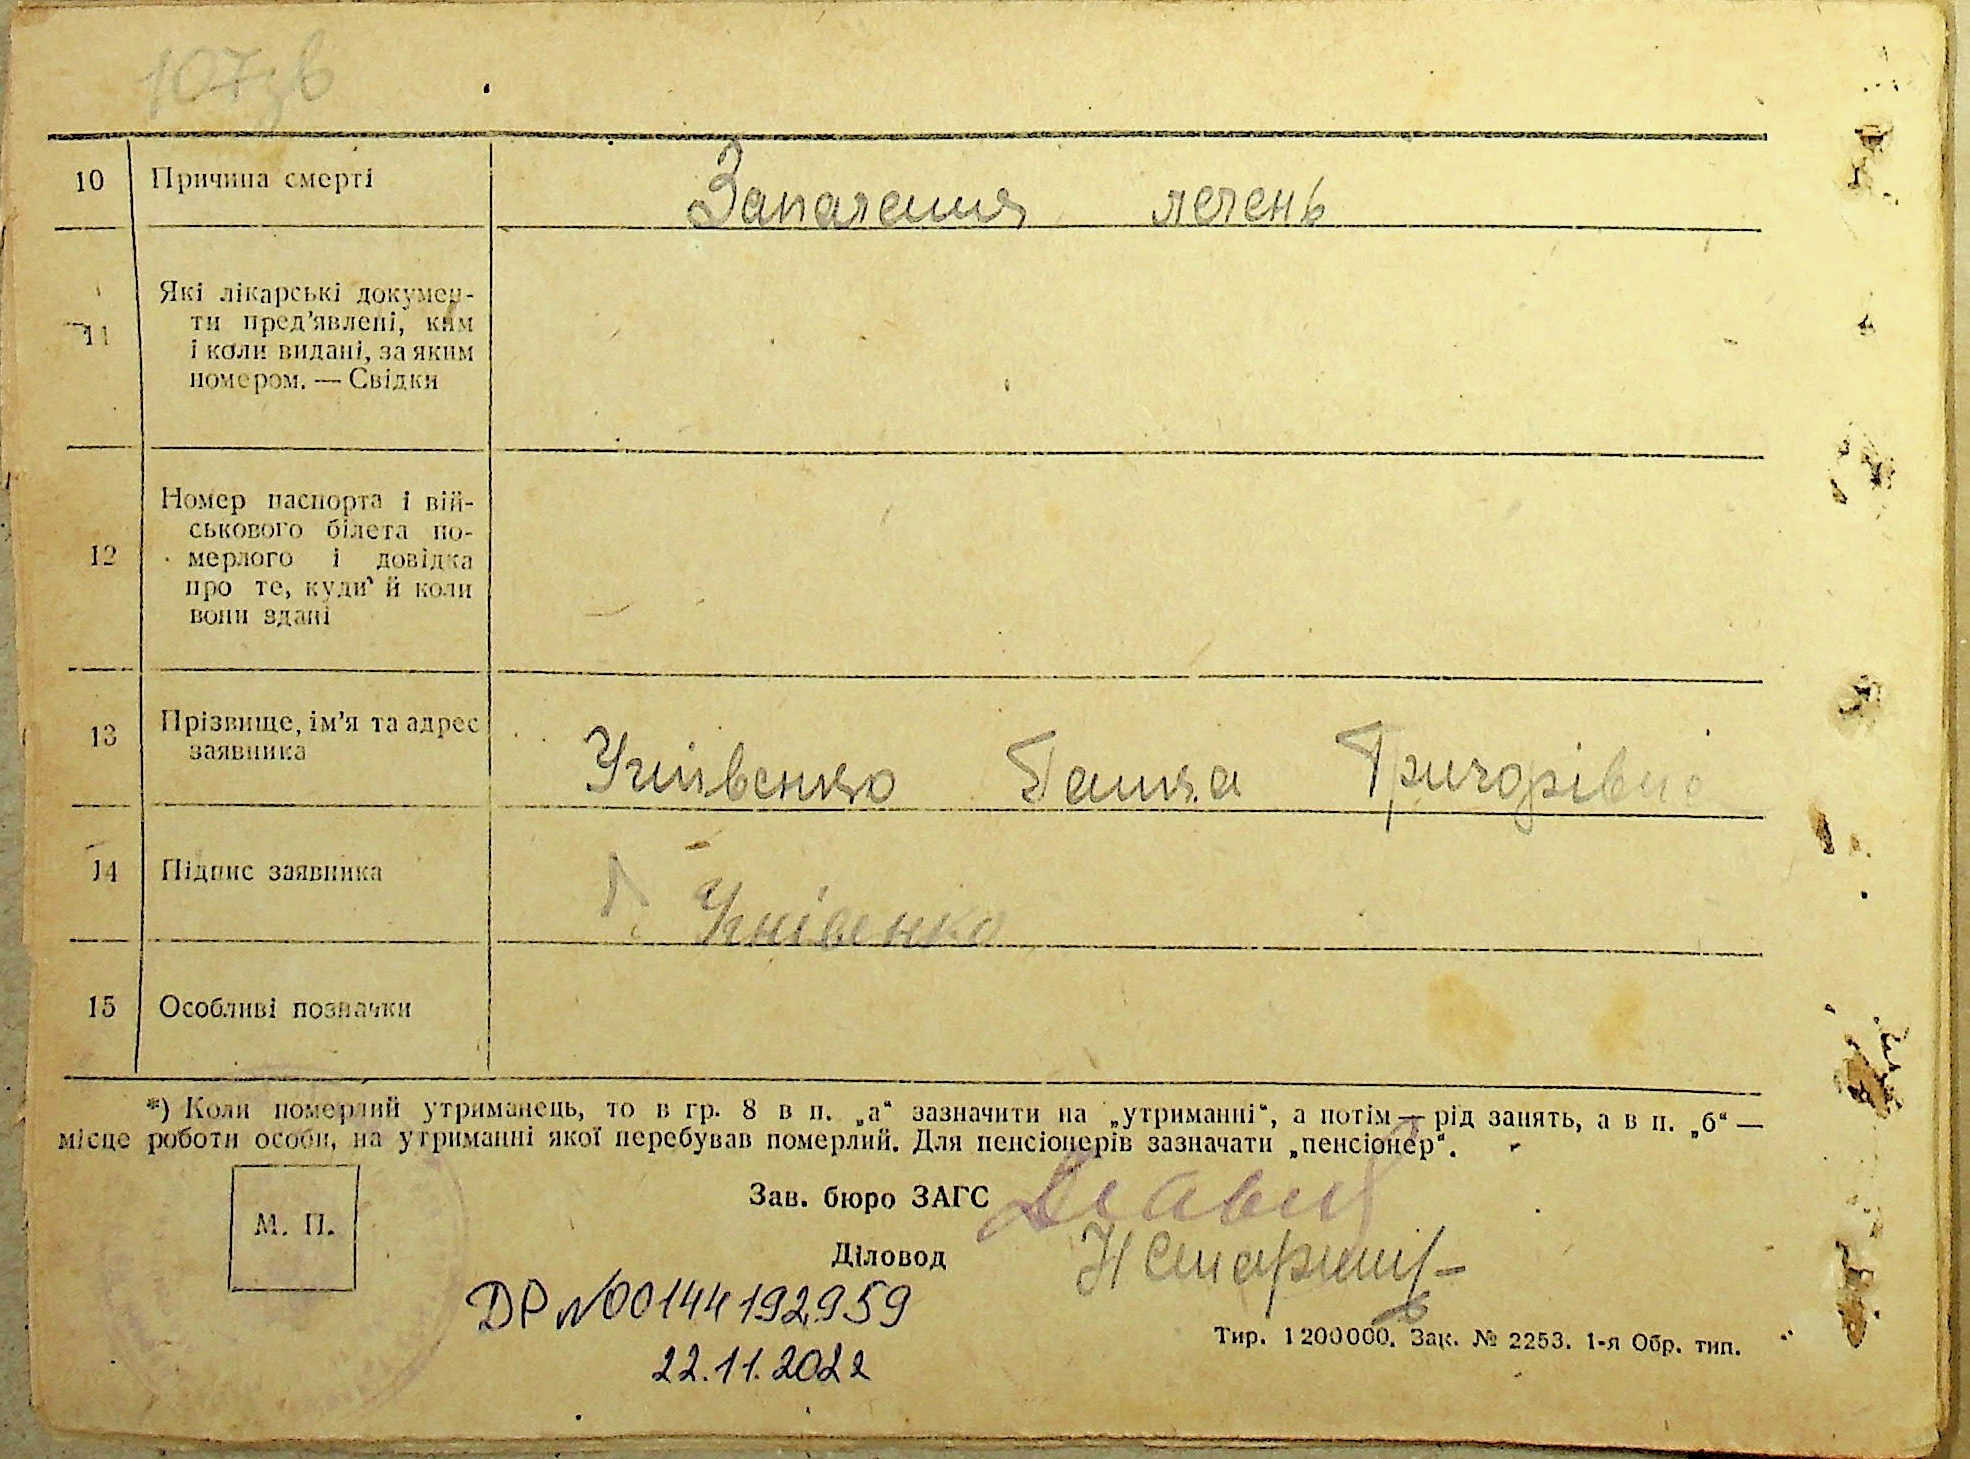 107зв
10 Причина смерті Запалення легень
11 Які лікарські докумен-
ти пред'явлені, ким
і коли видані, за яким
номером. — Свідки
12 Номер паспорта і вій-
ськового білета по-
мерлого і довідка
про те, куди й коли
вони здані
13 Прізвище, ім'я та адрес
заявника Учнівенко Ганна Григорівна
14 Підпис заявника Г. Учнівенко
15 Особливі позначки
*) Коли померлий утриманець, то в гр. 8 в п. „а“ зазначити на „утриманні“, а потім — рід занять, а в п. „б“ —
місце роботи особи, на утриманні якої перебував померлий. Для пенсіонерів зазначати „пенсіонер“.
Зав. бюро ЗАГС
М. П.
Діловод
ДР №00144192959
22.11.2022
Тир. 1200000. Зак. № 2253. 1-я Обр. тип.